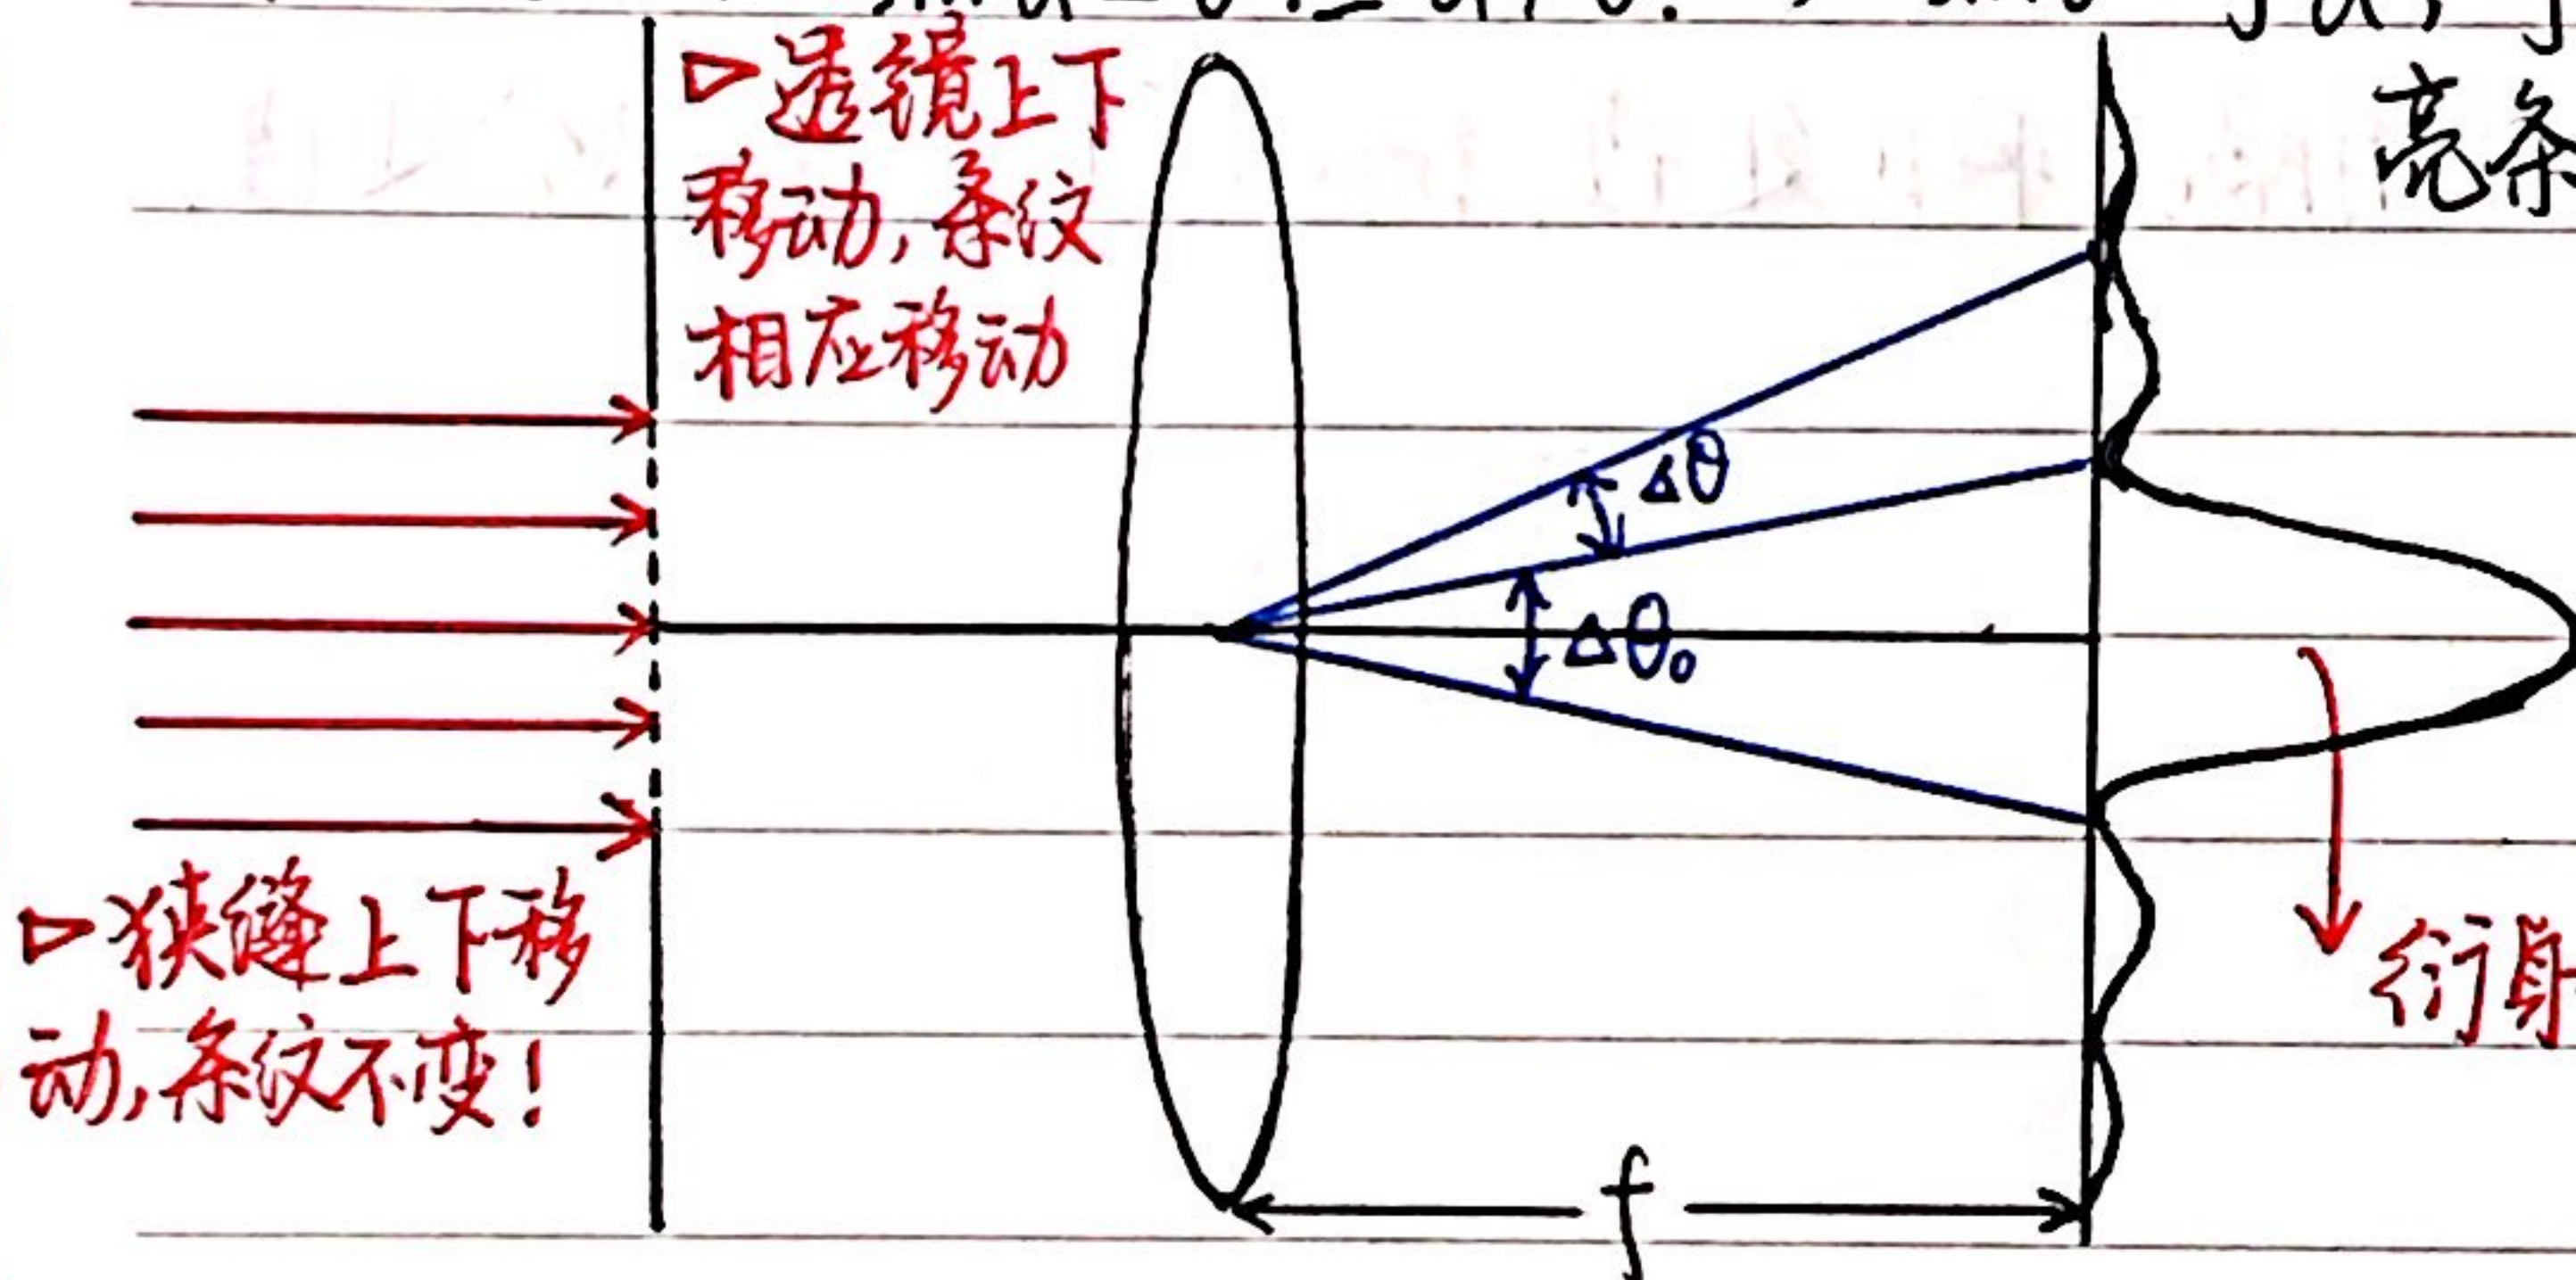 ▷透镜上下
移动,条纹
相应移动
亮条
Δθ
Δθ₀
▷狭缝上下移
动,条纹不变!
衍射
f